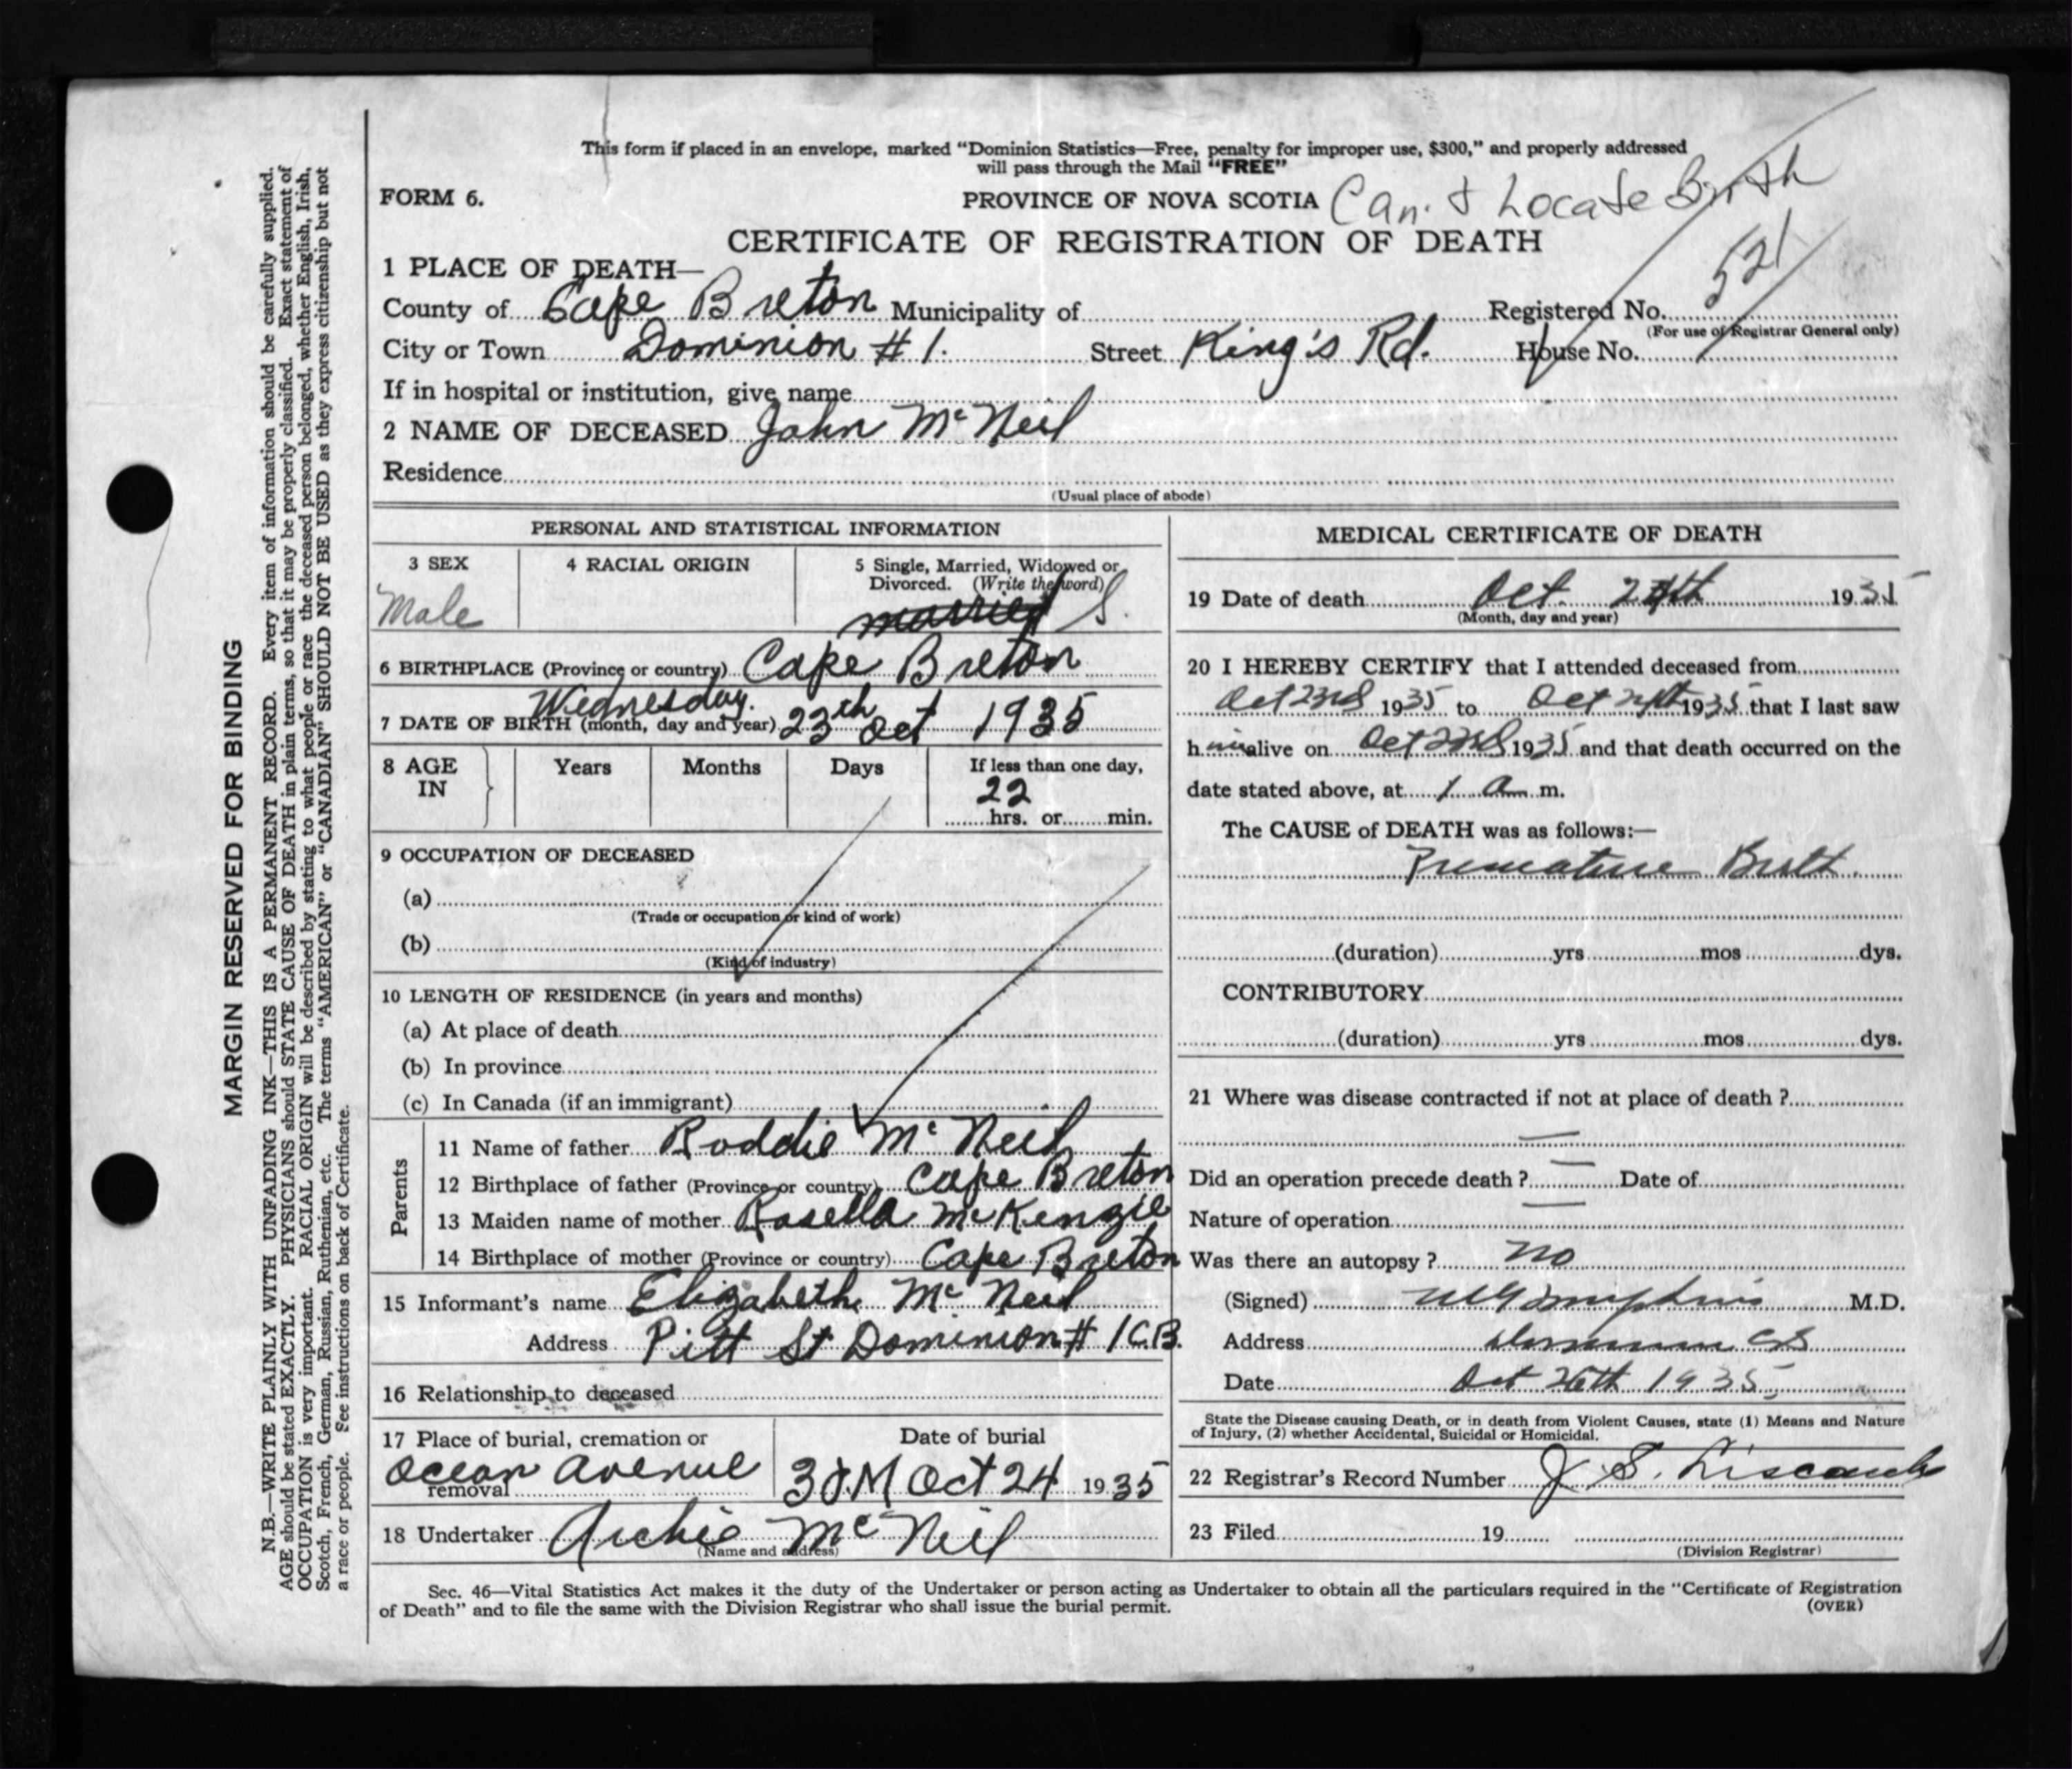 This form if placed in an envelope, marked "Dominion Statistics—Free, penalty for improper use, $300," and properly addressed
will pass through the Mail "FREE"
FORM 6.
PROVINCE OF NOVA SCOTIA Can. & Locate Birth
CERTIFICATE OF REGISTRATION OF DEATH
1 PLACE OF DEATH—
County of Cape Breton Municipality of Registered No. 521
(For use of Registrar General only)
City or Town Dominion # 1. Street King's Rd. House No.
If in hospital or institution, give name
2 NAME OF DECEASED John McNeil
Residence
(Usual place of abode)
PERSONAL AND STATISTICAL INFORMATION
3 SEX
Male
4 RACIAL ORIGIN
5 Single, Married, Widowed or
Divorced. (Write the word)
married S.
6 BIRTHPLACE (Province or country) Cape Breton
Wednesday.
7 DATE OF BIRTH (month, day and year) 23th Oct 1935
8 AGE IN
Years
Months
Days
If less than one day,
22
hrs. or min.
9 OCCUPATION OF DECEASED
(a)
(Trade or occupation or kind of work)
(b)
(Kind of industry)
10 LENGTH OF RESIDENCE (in years and months)
(a) At place of death
(b) In province
(c) In Canada (if an immigrant)
Parents
11 Name of father Roddie McNeil
12 Birthplace of father (Province or country) Cape Breton
13 Maiden name of mother Rosella McKenzie
14 Birthplace of mother (Province or country) Cape Breton
15 Informant's name Elizabeth McNeil
Address Pitt St Dominion # 1 C.B.
16 Relationship to deceased
17 Place of burial, cremation or
removal
Ocean Avenue
Date of burial
Oct 24 1935
18 Undertaker Archie McNeil
(Name and address)
MEDICAL CERTIFICATE OF DEATH
19 Date of death Oct. 24th 1935
(Month, day and year)
20 I HEREBY CERTIFY that I attended deceased from
Oct 23rd 1935 to Oct 24th 1935 that I last saw
him alive on Oct 23rd 1935 and that death occurred on the
date stated above, at 1 a m.
The CAUSE of DEATH was as follows:—
Premature Birth.
(duration) yrs mos dys.
CONTRIBUTORY
(duration) yrs mos dys.
21 Where was disease contracted if not at place of death ?
Did an operation precede death ? Date of
Nature of operation
Was there an autopsy ? no
(Signed) M.D.
Address Dominion CB
Date Oct 26th 1935
State the Disease causing Death, or in death from Violent Causes, state (1) Means and Nature
of Injury, (2) whether Accidental, Suicidal or Homicidal.
22 Registrar's Record Number J. S. Liscomb
23 Filed 19
(Division Registrar)
Sec. 46—Vital Statistics Act makes it the duty of the Undertaker or person acting as Undertaker to obtain all the particulars required in the "Certificate of Registration
of Death" and to file the same with the Division Registrar who shall issue the burial permit.
(OVER)
MARGIN RESERVED FOR BINDING
N.B.—WRITE PLAINLY WITH UNFADING INK—THIS IS A PERMANENT RECORD. Every item of information should be carefully supplied.
AGE should be stated EXACTLY. PHYSICIANS should STATE CAUSE OF DEATH in plain terms, so that it may be properly classified. Exact statement of
OCCUPATION is very important. RACIAL ORIGIN will be described by stating to what people or race the deceased person belonged, whether English, Irish,
Scotch, French, German, Russian, Ruthenian, etc. The terms "AMERICAN" or "CANADIAN" SHOULD NOT BE USED as they express citizenship but not
a race or people. See instructions on back of Certificate.